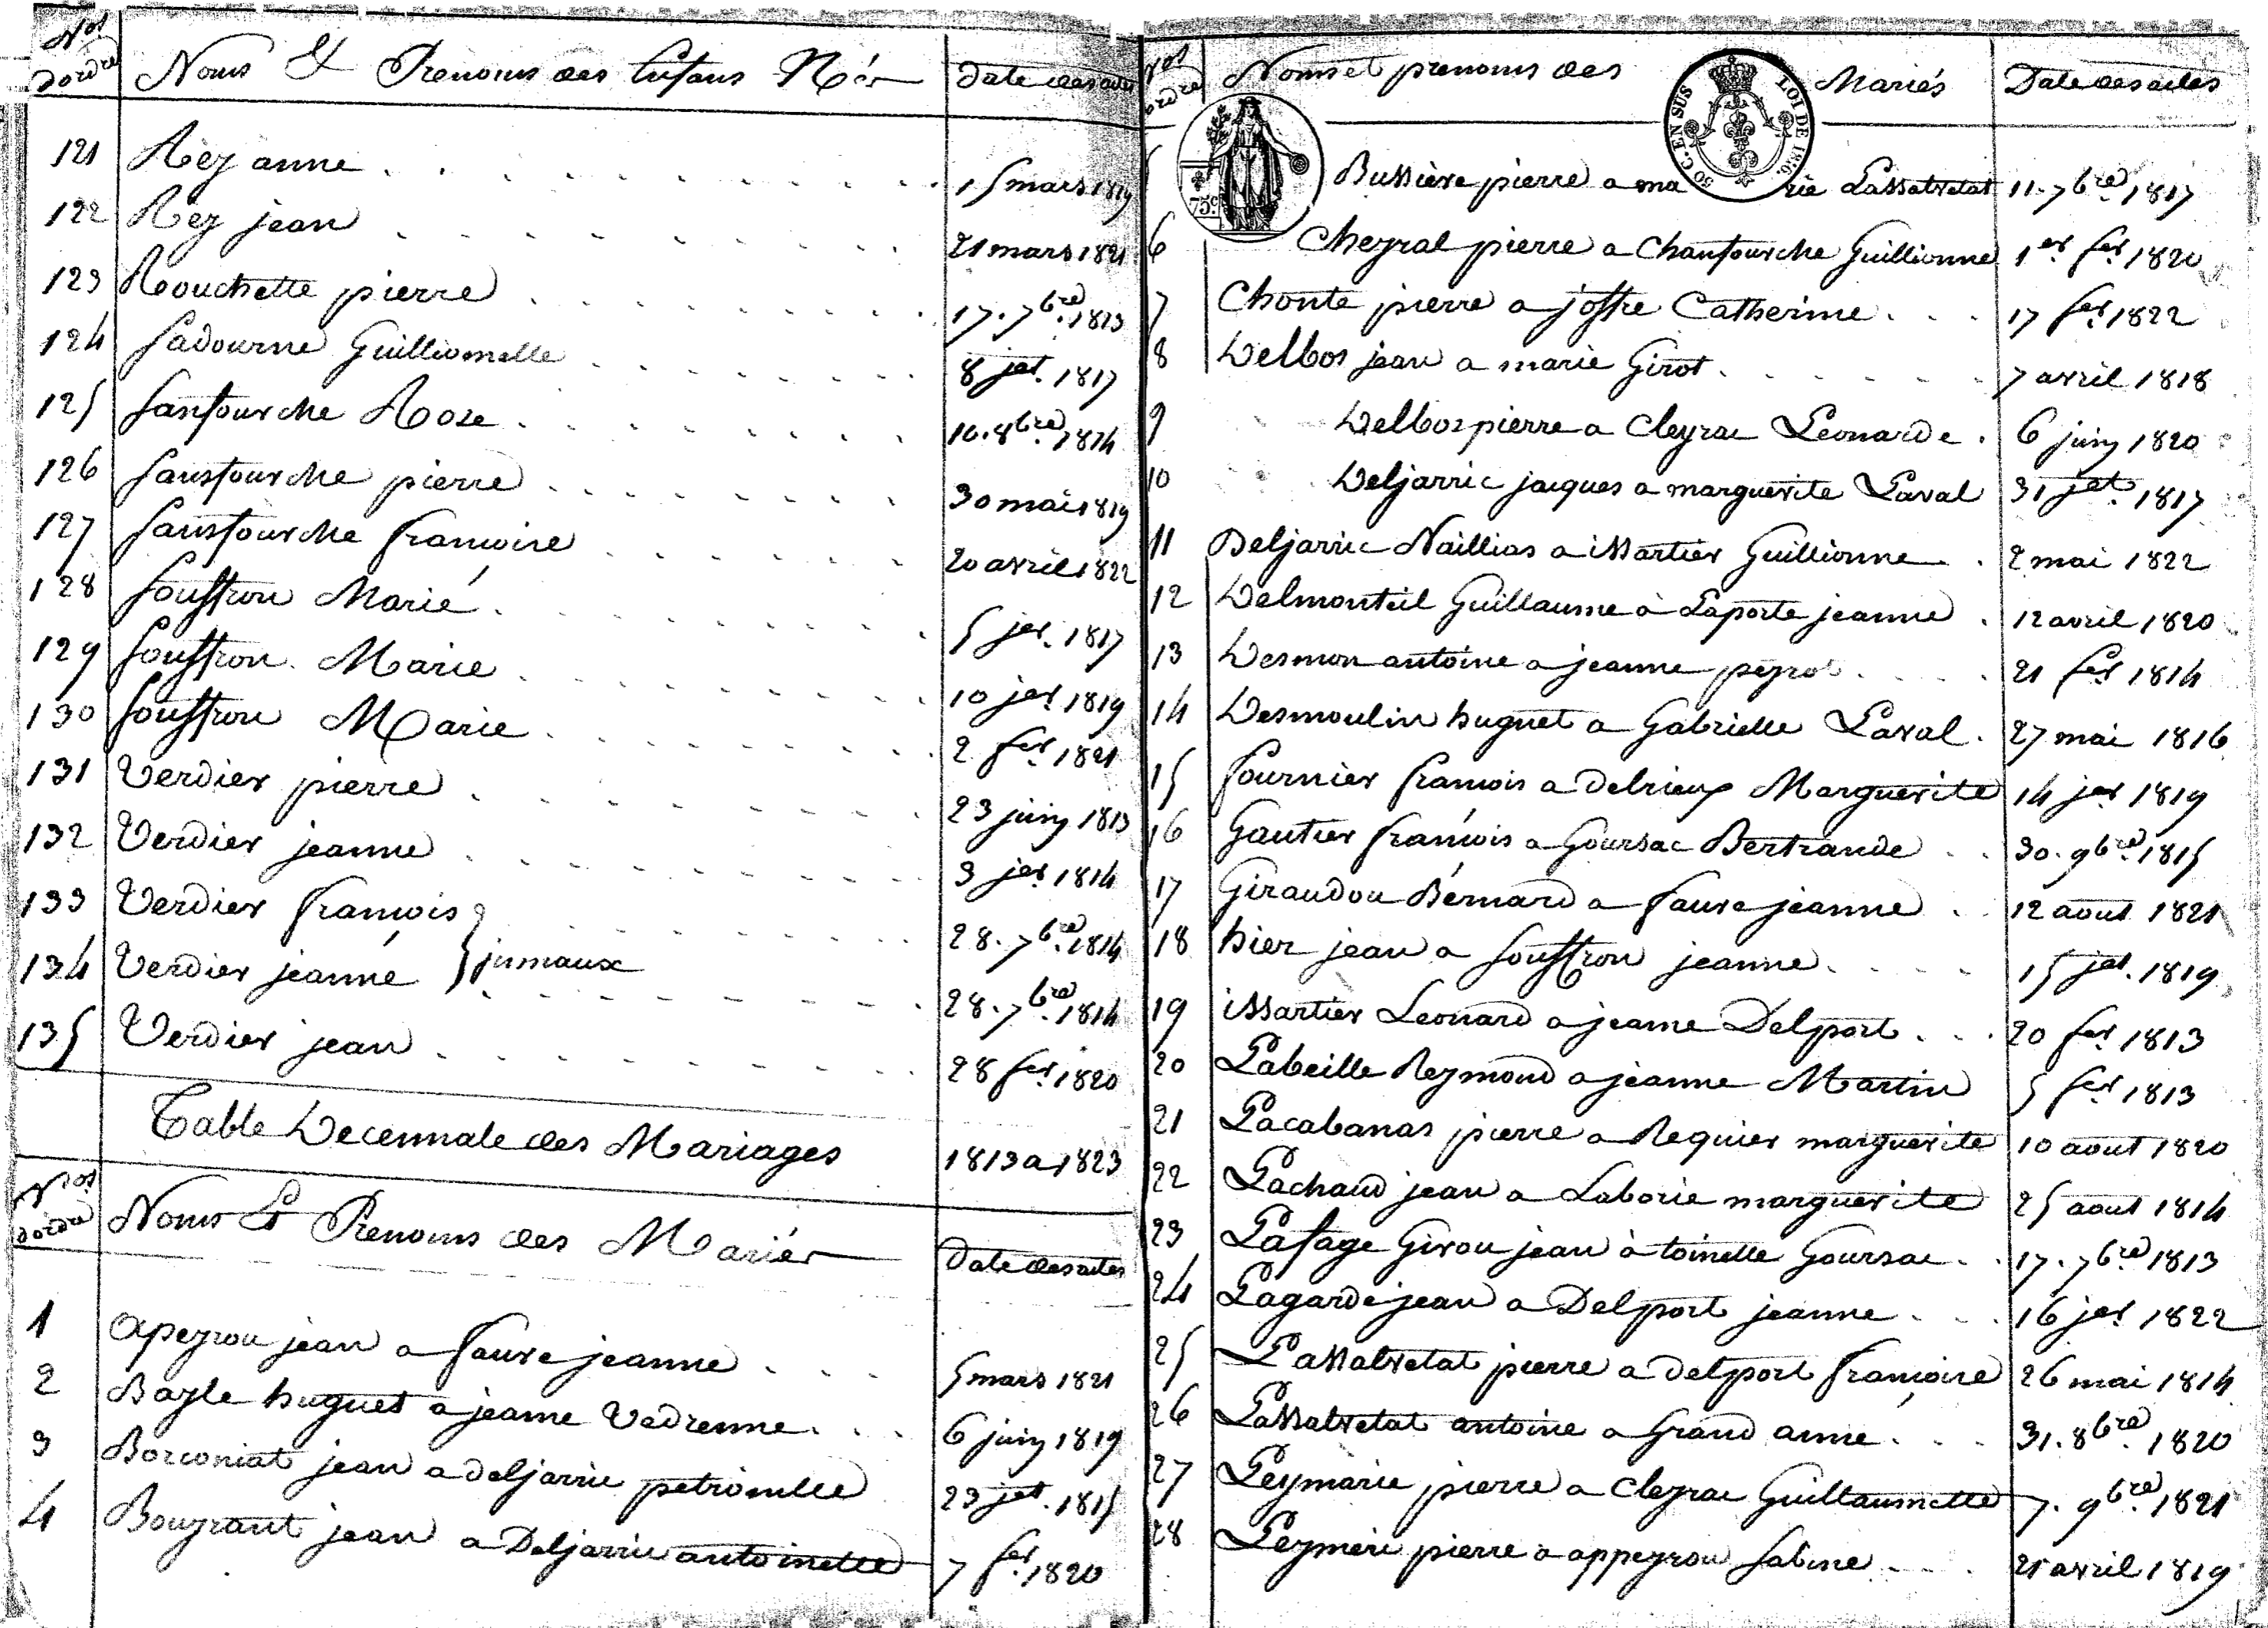 Nos dordre Noms Et Prenoms des Enfans Nés Date des actes
121 Rey anne 15 mars 1819
122 Rey jean 21 mars 1821
123 Rouchette pierre 17. 7bre. 1823
124 Sadourne Guillionnelle 8 jet. 1817
125 Sansourche Roze 16. 8bre. 1814
126 Sansourche pierre 30 mai 1819
127 Sansourche francoise 20 avril 1822
128 Souffron Marie 5 jer. 1817
129 Souffron Marie 10 jer. 1819
130 Souffron Marie 2 fer. 1821
131 Verdier pierre 23 juin 1813
132 Verdier jeanne 3 jer. 1814
133 Verdier francois 28. 7bre. 1814
134 Verdier jeanne } jumaux 28. 7bre. 1814
135 Verdier jean 28 fer. 1820
Table Decennale des Mariages 1813 a 1823
Nos dordre Noms Et Prenoms des Mariés Date des actes
1 apeyrou jean a faure jeanne 5 mars 1821
2 Bayle huguet a jeanne Vedrenne 6 juin 1819
3 Borconiat jean a deljarric petronille 23 jet. 1815
4 Bouyrant jean a Deljarric antoinette 7 fer. 1820
Nos ordre Noms et prenoms des Mariés Date des actes
50 C. EN SUS LOI DE 1816.
75c
5 Bussière pierre a marie Lassalvetat 11. 7bre. 1817
6 Cheyral pierre a Chansourche Guillionne 1er fer. 1820
7 Chonte pierre a joffre Catherine 17 fer. 1822
8 Delbos jean a marie Girot 7 avril 1818
9 Delbos pierre a Cleyrac Leonarde 6 juin 1820
10 Deljarric jacques a marguerite Laval 31 jet. 1817
11 Deljarric Naillias a issartier Guillionne 2 mai 1822
12 Delmonteil Guillaume à Laporte jeanne 12 avril 1820
13 Desmon antoine a jeanne peyrot 21 fer. 1814
14 Desmoulin huguet a Gabrielle Laval 27 mai 1816
15 fournier francois a delrieux Marguerite 14 jer. 1819
16 Gautier francois a Goursac Bertrande 30. 9bre. 1815
17 Giraudou Bernard a faure jeanne 12 aout 1821
18 hier jean a Souffron jeanne 15 jet. 1819
19 issartier Leonard a jeanne Delport 20 fer. 1813
20 Labeille Reymond a jeanne Martin 5 fer. 1813
21 Lacabanas pierre a Requier marguerite 10 aout 1820
22 Lachaud jean a Laborie marguerite 25 aout 1814
23 Lafage Girou jean à toinelle Goursac 17. 7bre 1813
24 Lagarde jean a Delport jeanne 16 jer. 1822
25 Lassalvetat pierre a delport francoise 26 mai 1814
26 Lassalvetat antoine a Grand anne 31. 8bre. 1820
27 Leymarie pierre a Cleyrac Guillaumette 7. 9bre. 1821
28 Leymeri pierre a appeyrou Sabine 21 avril 1819